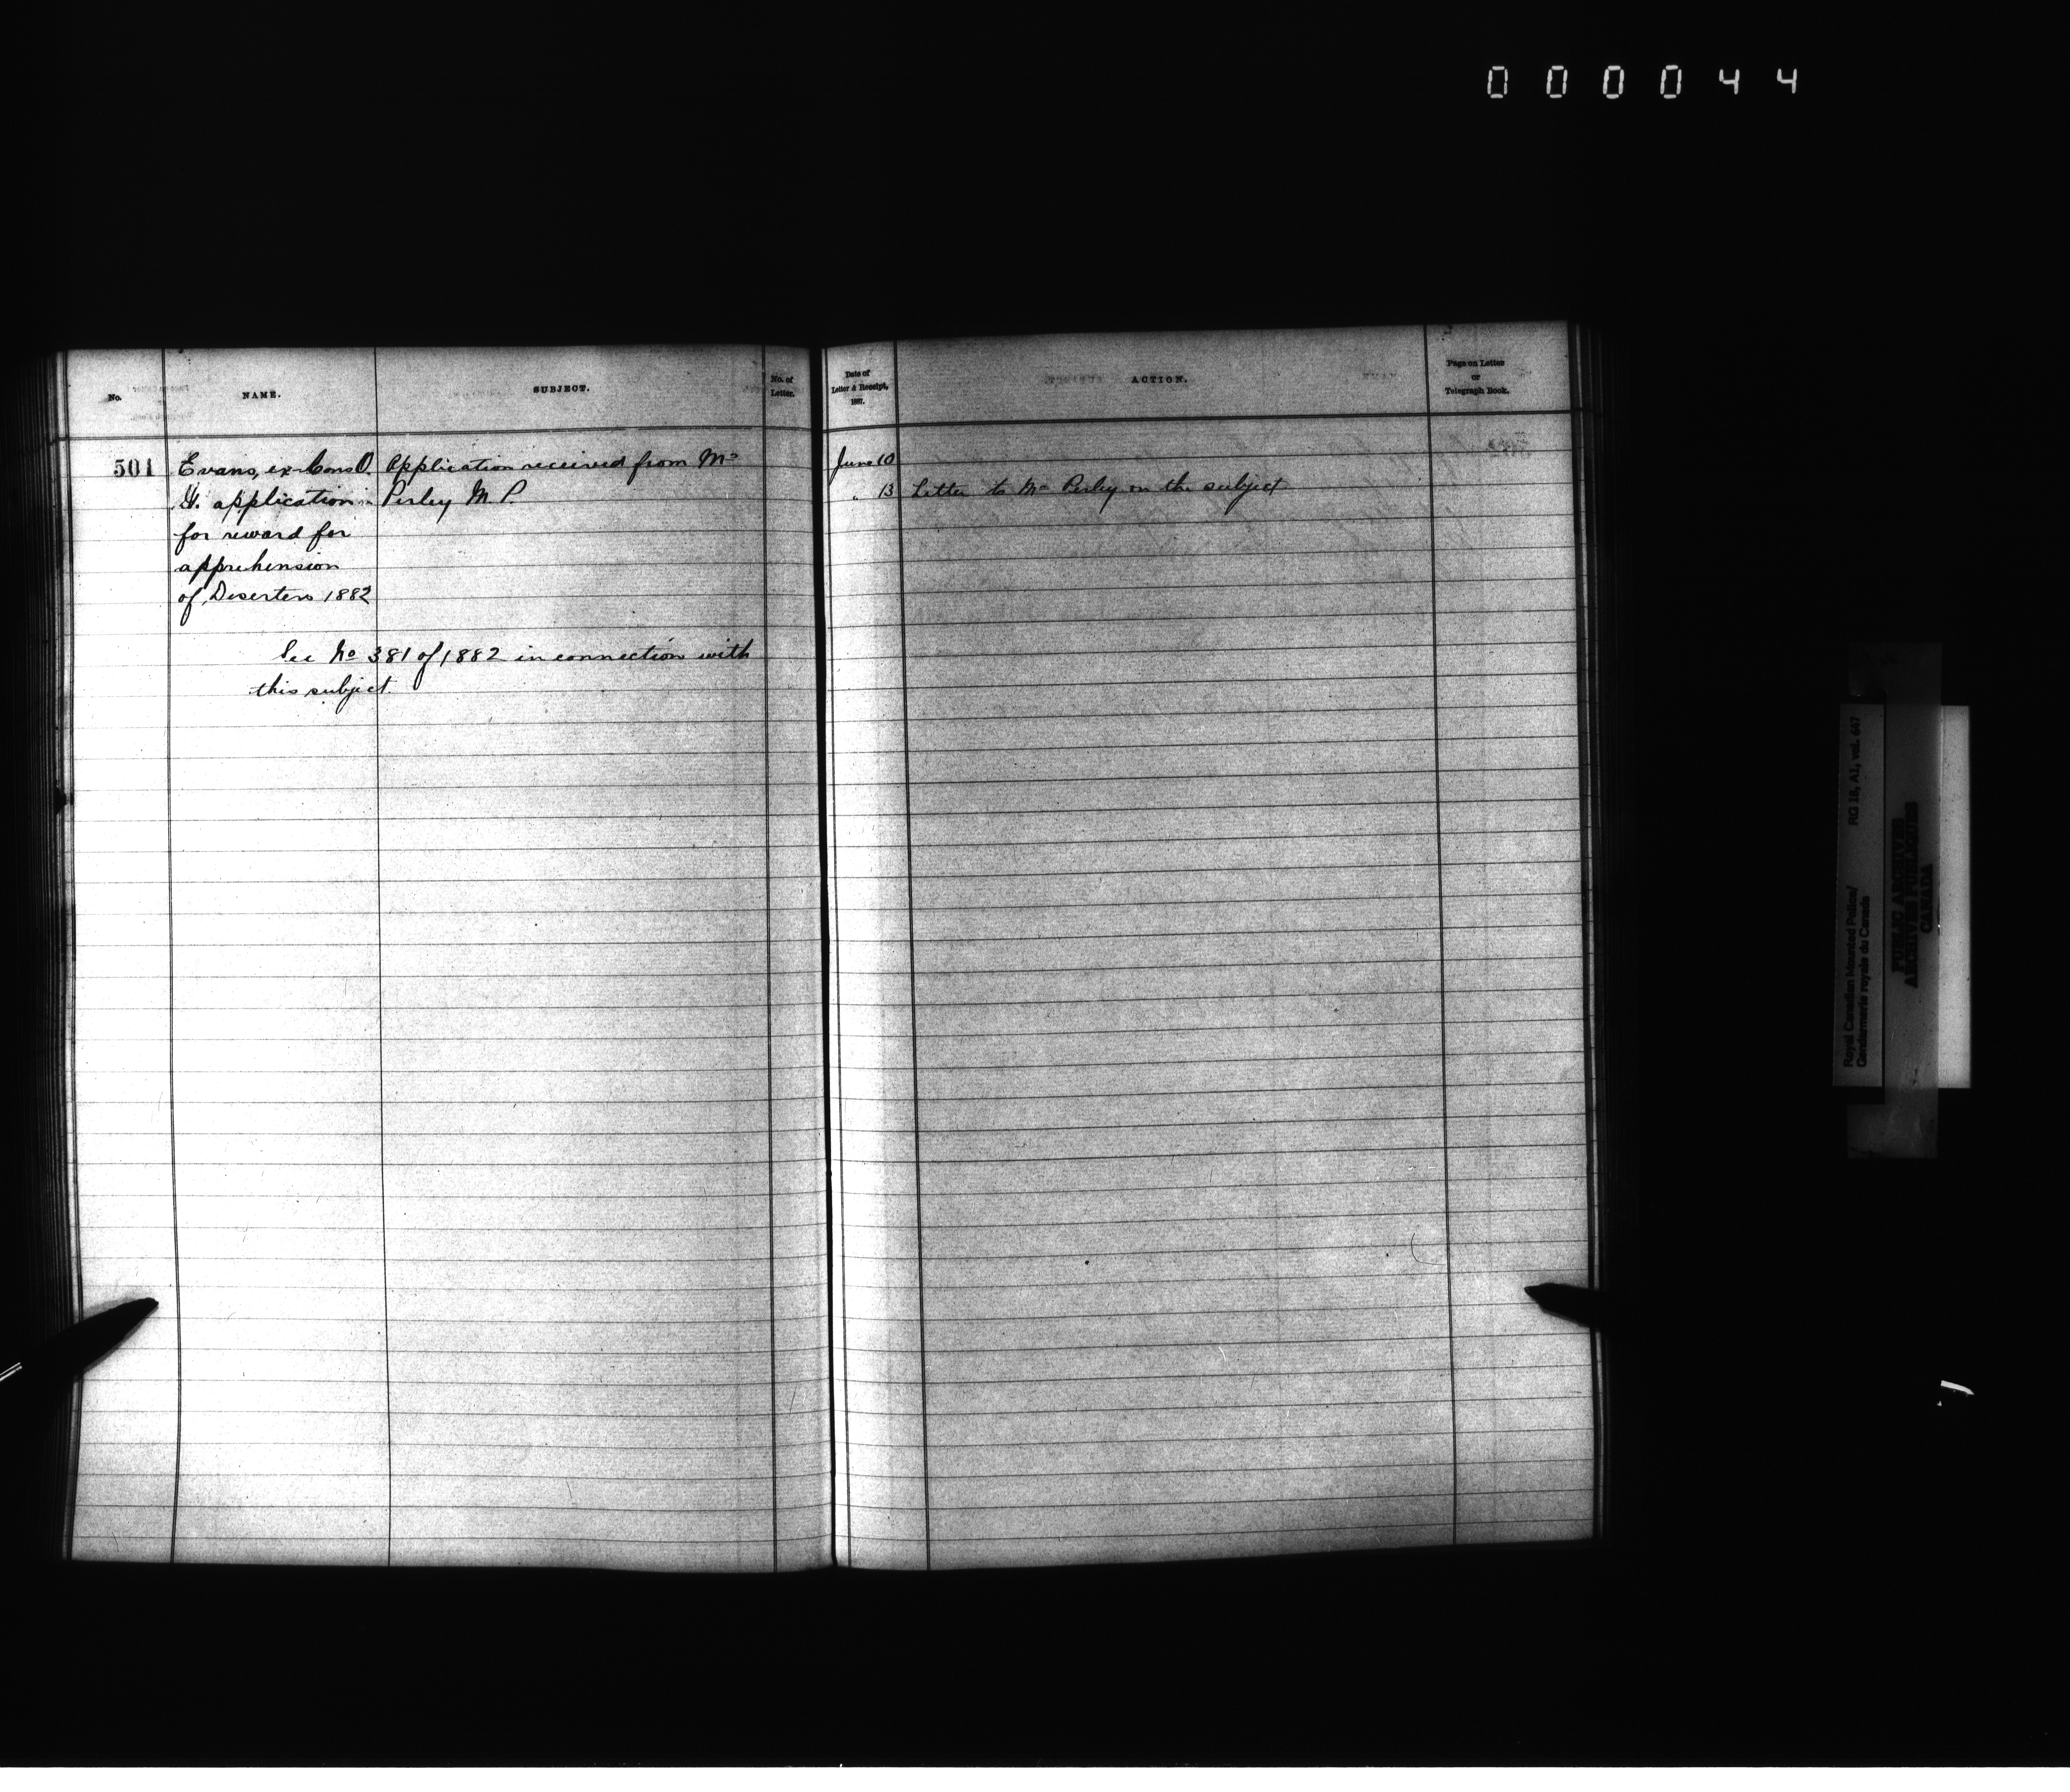 000044
No.
NAME.
SUBJECT.
No. of
Letter.
Date of
Letter & Receipt,
1887.
ACTION.
Page on Letter
or
Telegraph Book.
501
Evans, ex-Cons O.
G. application
for reward for
apprehension
of Deserters 1882
Application received from Mr
Perley M. P.
See No 381 of 1882 in connection with
this subject.
June 10
" 13
Letter to Mr Perley on the subject
Royal Canadian Mounted Police/
Gendarmerie royale du Canada
RG 18, A1, vol. 647
PUBLIC ARCHIVES
ARCHIVES PUBLIQUES
CANADA